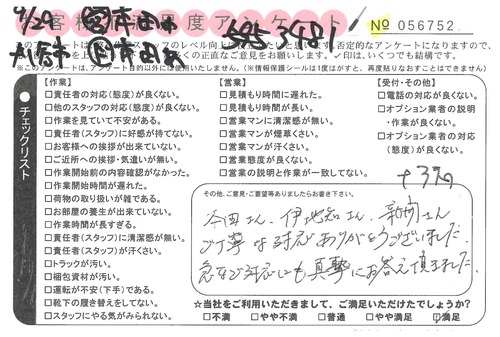 4/29
お客様満足度アンケート
3481
№ 056752
✓印は、いくつでも結構です。
※このアンケートは、アンケート目的以外には使用いたしません。(情報保護シールは1度はがすと、再度貼りなおすことはできません)
●チェックリスト
【作業】
□責任者の対応(態度)が良くない。
□他のスタッフの対応(態度)が良くない。
□作業を見ていて不安がある。
□責任者(スタッフ)に好感が持てない。
□お客様への挨拶が出来ていない。
□ご近所への挨拶・気遣いが無い。
□作業開始前の内容確認がなかった。
□作業開始時間が遅れた。
□荷物の取り扱いが雑である。
□お部屋の養生が出来ていない。
□作業時間が長すぎる。
□責任者(スタッフ)に清潔感が無い。
□責任者(スタッフ)が汗くさい。
□トラックが汚い。
□梱包資材が汚い。
□運転が不安(下手)である。
□靴下の履き替えをしてない。
□スタッフにやる気がみられない。
【営業】
□見積もり時間に遅れた。
□見積もり時間が長い。
□営業マンに清潔感が無い。
□営業マンが煙草くさい。
□営業マンが汗くさい。
□営業態度が良くない。
□営業の説明と作業が一致してない。
【受付・その他】
□電話の対応が良くない。
□オプション業者の説明・作業が良くない。
□オプション業者の対応(態度)が良くない。
その他、ご意見・ご要望等ありましたらお書き下さい。
本田さん、伊地知さん、新町さん
ご丁寧な対応ありがとうございました。
急な対応にも真摯にお答え頂きました。
☆当社をご利用いただきまして、ご満足いただけたでしょうか?
□不満 □やや不満 □普通 □やや満足 ☑満足